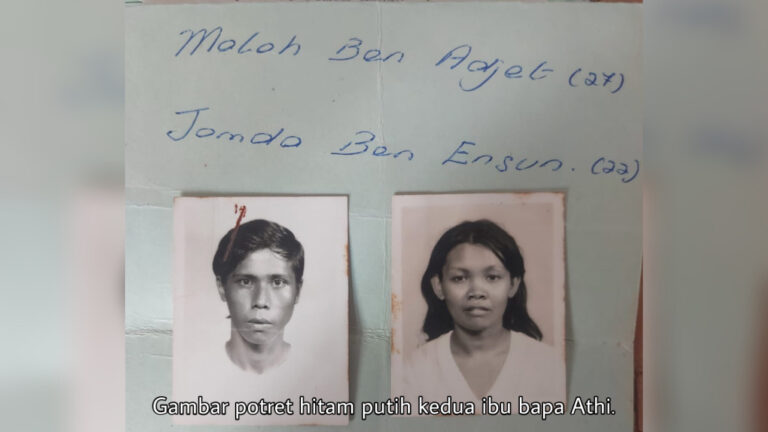 Maloh Ben Adjet (27)
Jomda Ben Ensun. (22)
Gambar potret hitam putih kedua ibu bapa Athi.